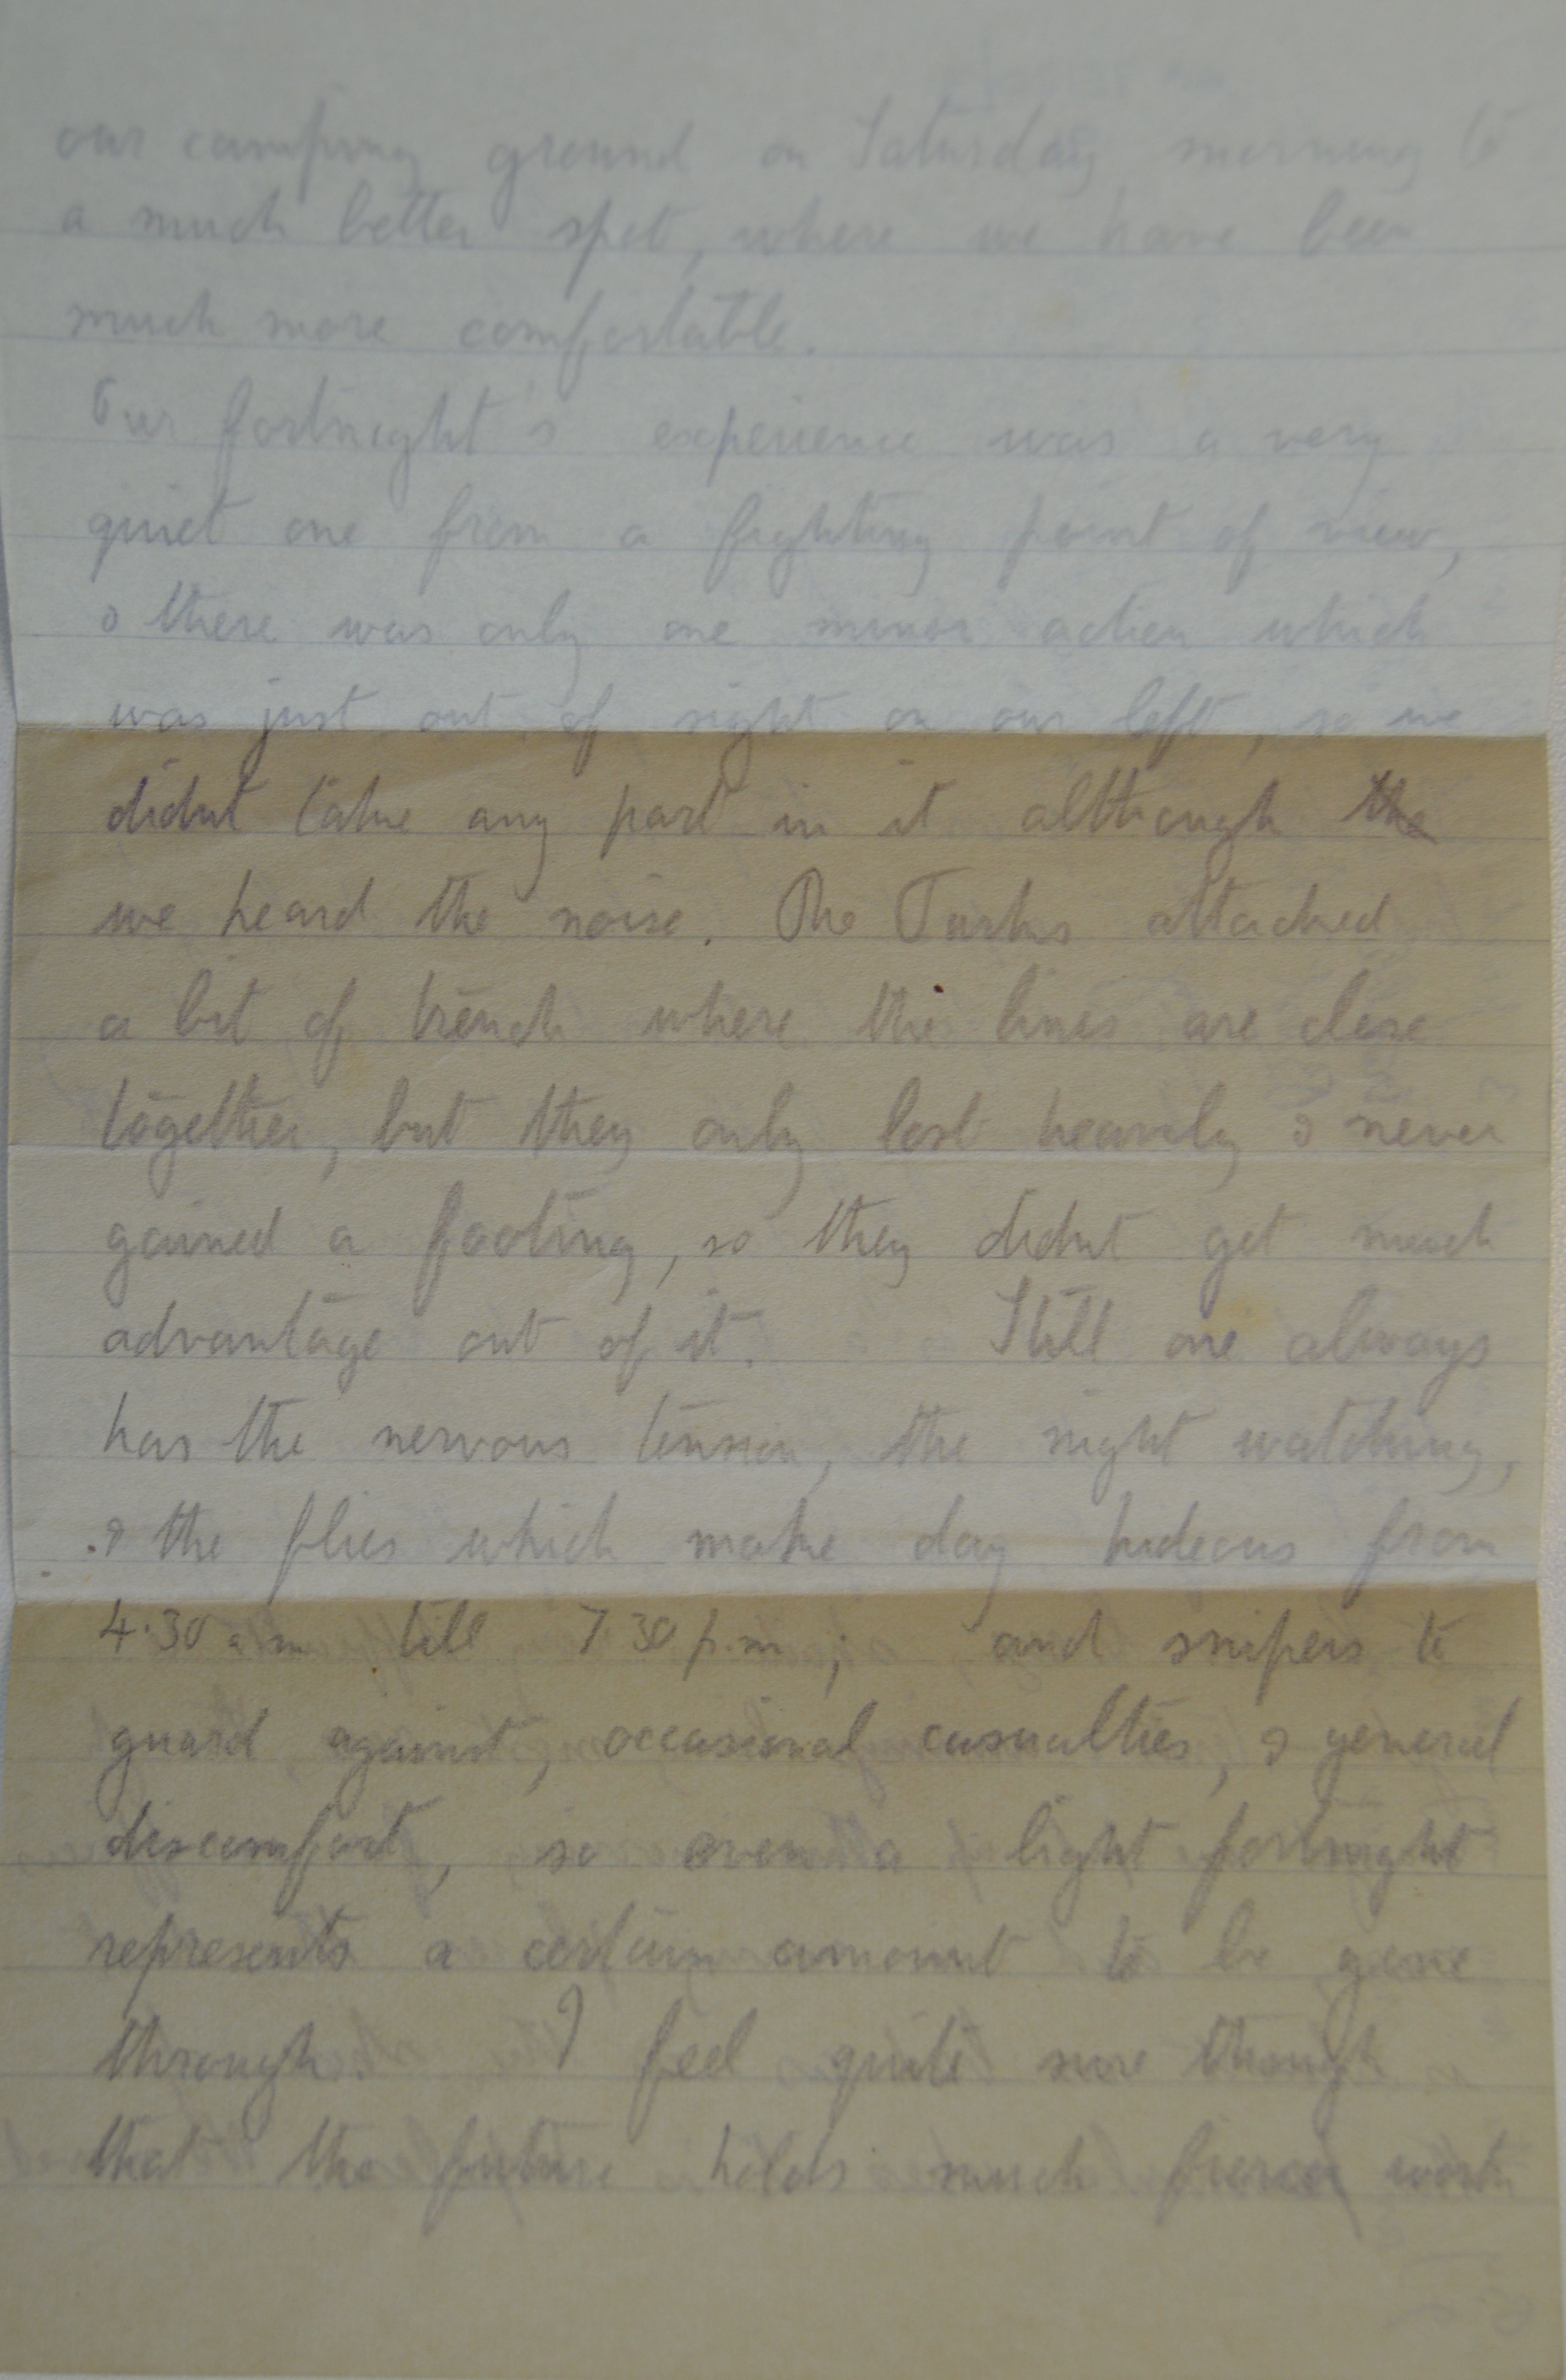 our camping ground on Saturday morning to
a much better spot, where we have been
much more comfortable.
Our fortnight's experience was a very
quiet one from a fighting point of view,
& there was only one minor action which
was just out of sight on our left, so we
didnt take any part in it although the
we heard the noise. The Turks attacked
a bit of trench where the lines are close
together, but they only lost heavily & never
gained a footing, so they didnt get much
advantage out of it. Still one always
has the nervous tension, the night watching,
& the flies which make day hideous from
4.30 a.m till 7.30 p.m; and snipers to
guard against, occasional casualties, & general
discomfort, so even a light fortnight
represents a certain amount to be gone
through. I feel quite sure though
that the future holds much fiercer work